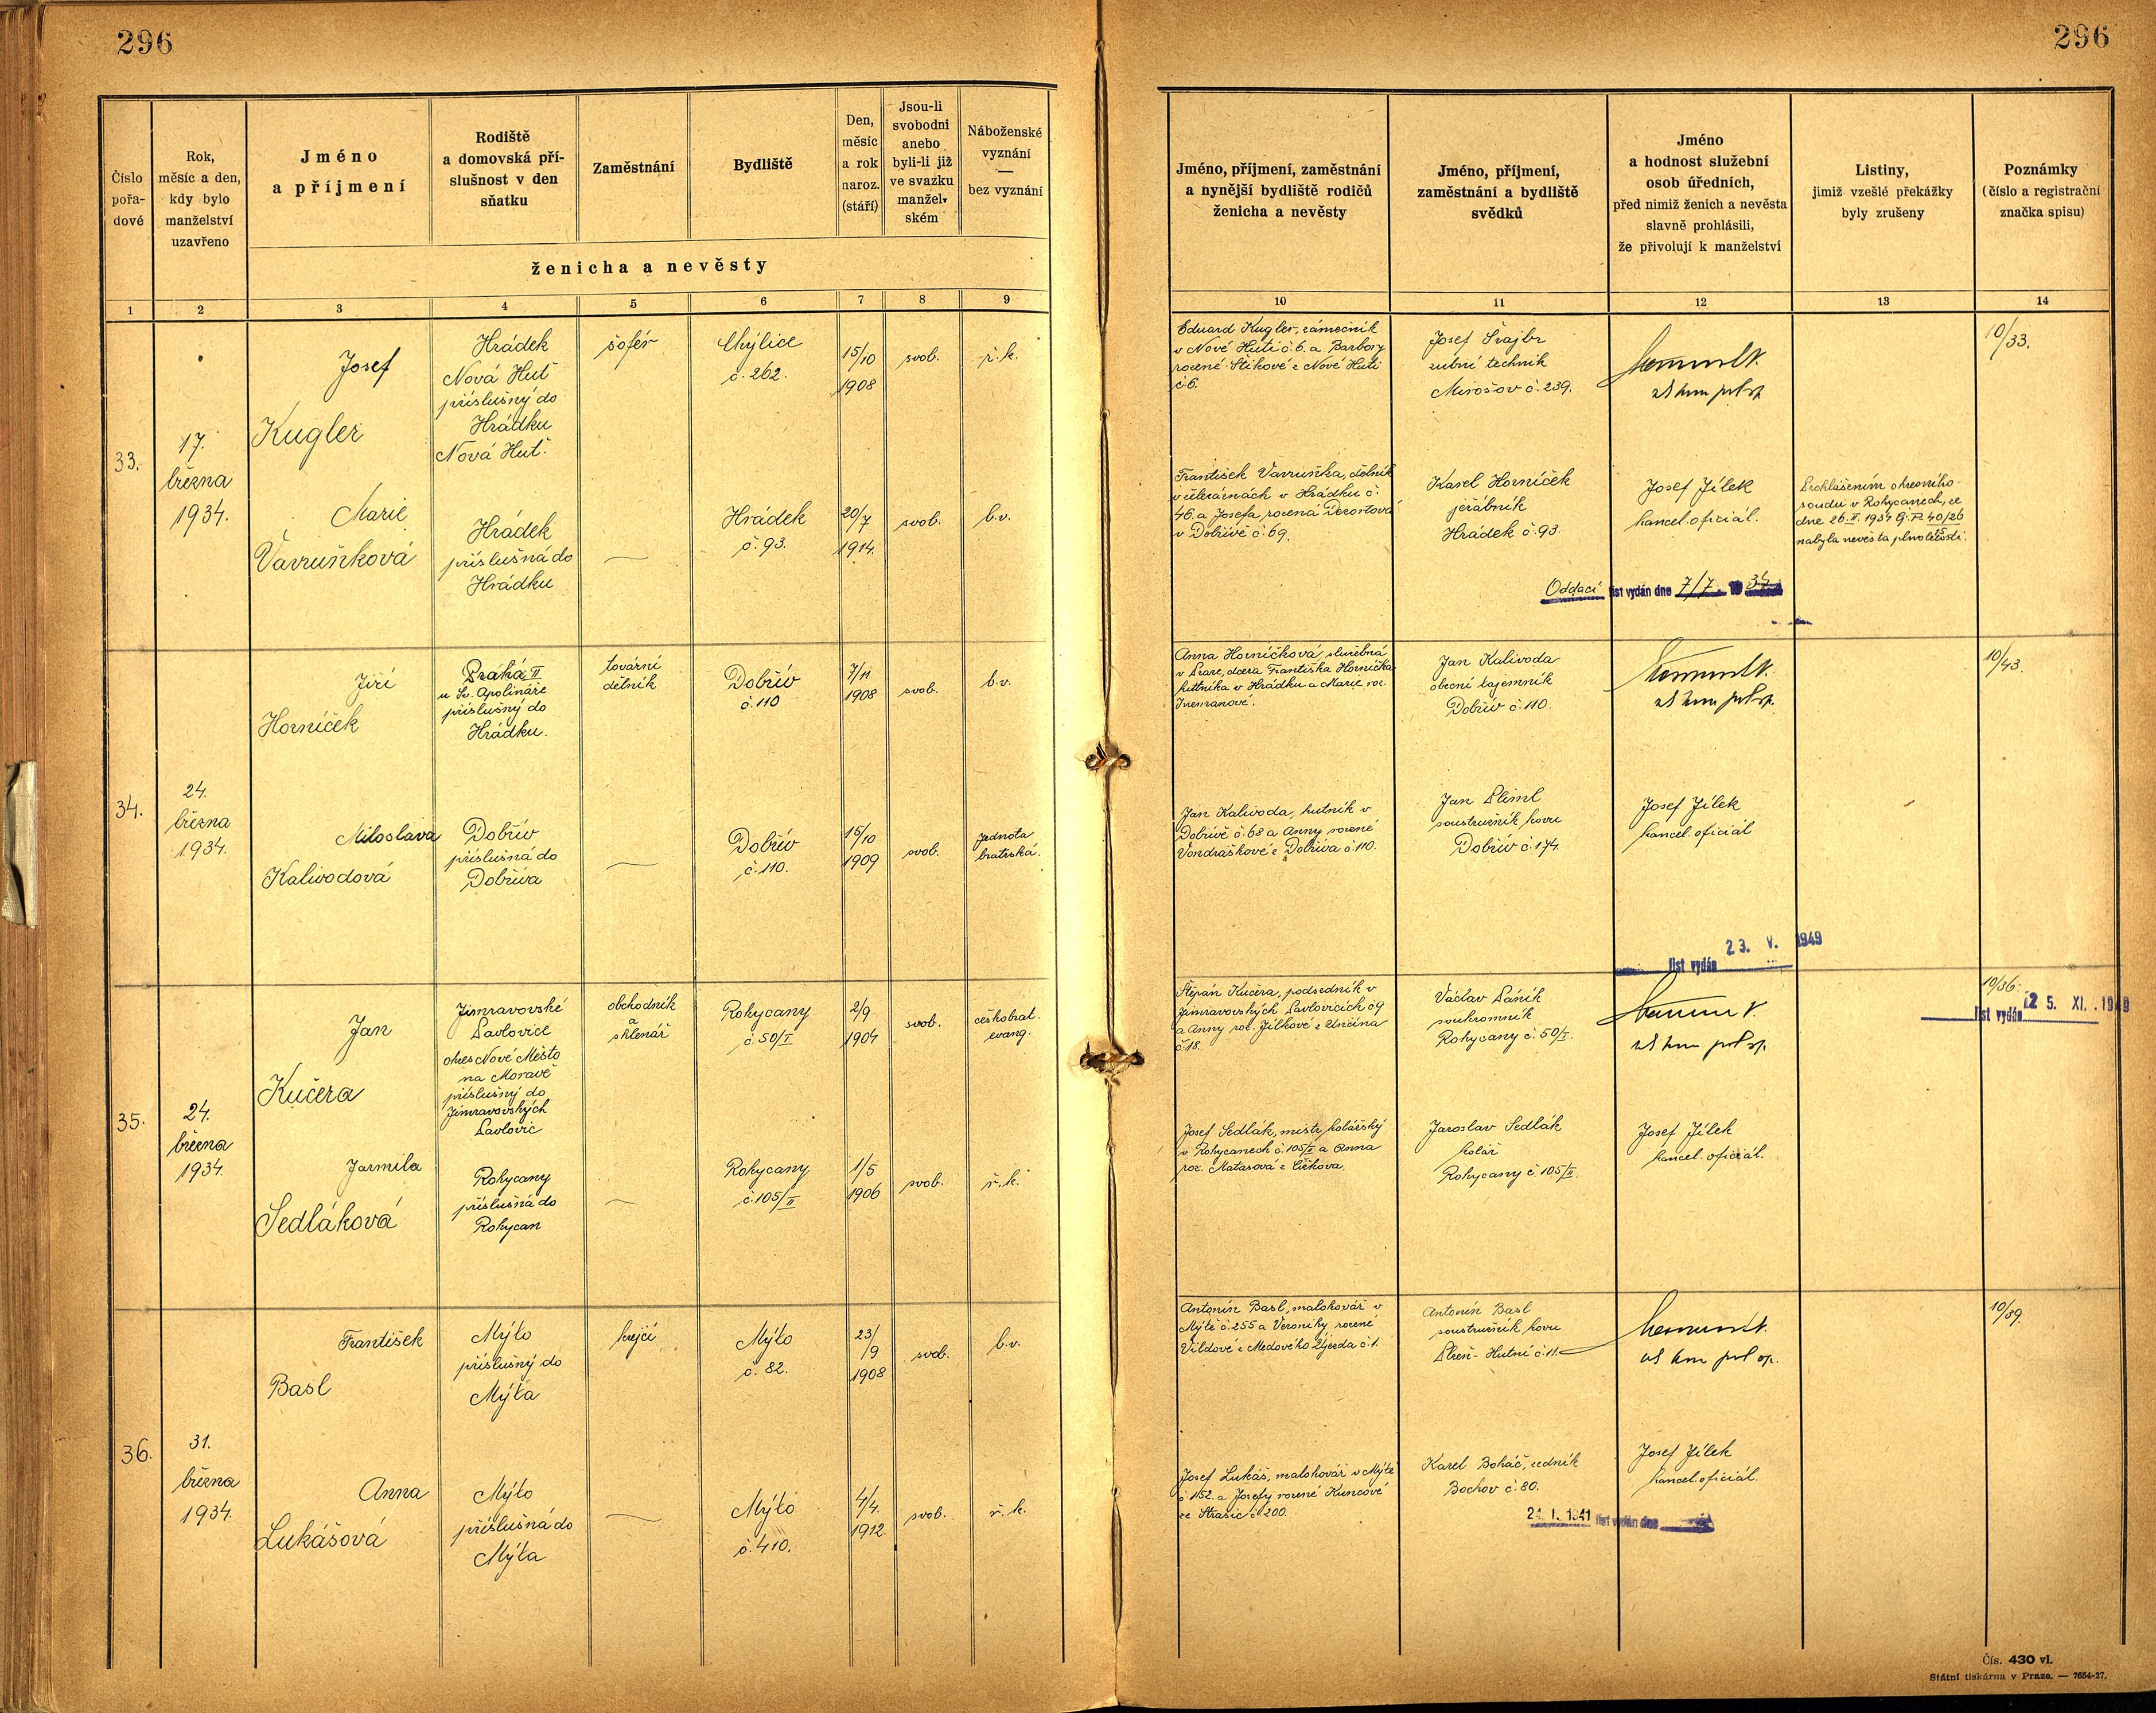 296
296
Číslo
pořa-
dové
Rok,
měsíc a den,
kdy bylo
manželství
uzavřeno
Jméno
a příjmení
Rodiště
a domovská pří-
slušnost v den
sňatku
Zaměstnání
Bydliště
Den,
měsíc
a rok
naroz.
(stáří)
Jsou-li
svobodni
anebo
byli-li již
ve svazku
manžel-
ském
Náboženské
vyznání
—
bez vyznání
ženicha a nevěsty
Jméno, příjmení, zaměstnání
a nynější bydliště rodičů
ženicha a nevěsty
Jméno, příjmení,
zaměstnání a bydliště
svědků
Jméno
a hodnost služební
osob úředních,
před nimiž ženich a nevěsta
slavně prohlásili,
že přivolují k manželství
Listiny,
jimiž vzešlé překážky
byly zrušeny
Poznámky
(číslo a registrační
značka spisu)
1 2 3 4 5 6 7 8 9 10 11 12 13 14
33.
17.
března
1934.
Josef
Kugler
Hrádek
Nová Huť
příslušný do
Hrádku
Nová Huť.
šofér
č. 262.
15/10
1908
svob.
ř.k.
Eduard Kugler, zámečník
v Nové Huti č. 6. a Barbory
rozené Stikové z Nové Huti
č. 6.
Josef Švajbr
zubní technik
Mirošov č. 239.
10/33.
Marie
Vavruňková
Hrádek
příslušná do
Hrádku
—
Hrádek
č. 93.
20/7
1914.
svob.
b.v.
František Vavruňka, dělník
v železárnách v Hrádku č.
46. a Josefa rozená
v Dobřívě č. 69.
Karel Horníček
jeřábník
Hrádek č. 93.
Josef Jílek
kancel. oficiál.
Prohlášením okresního
soudu v Rokycanech, ze
dne 26. II. 1934 G. P. 40/26
15
nabyla nevěsta plnoletosti.
Oddací list vydán dne 7/7. 19 34
34.
24.
března
1934.
Jiří
Horníček
Praha II
u Sv. Apolináře
příslušný do
Hrádku.
tovární
dělník
Dobřív
č. 110
7/11
1908
svob.
b.v.
Anna Horníčková, služebná
v Praze, dcera Františka Horníčka
hutníka v Hrádku a Marie roz.
Jan Kalivoda
obecní tajemník
Dobřív č. 110.
10/43
Miloslava
Kalivodová
Dobřív
příslušná do
Dobříva
—
Dobřív
č. 110.
15/10
1909
svob.
Jednota
bratrská.
Jan Kalivoda, hutník v
Dobřívě č. 68 a Anny rozené
Vondráškové z Dobříva č. 110.
Jan Pliml
soustružník kovu
Dobřív č. 174.
Josef Jílek
kancel. oficiál
23. V. 1949
list vydán
35.
24.
března
1934.
Jan
Kučera
Jimravovské
Pavlovice
okres Nové Město
na Moravě
příslušný do
Jimravovských
Pavlovic
obchodník
a
sklenář
Rokycany
č. 50/I
2/9
1904
svob.
českobrat.
evang.
Štěpán Kučera, podsedník v
Jimravovských Pavlovicích č. 9
a Anny roz. Jílkové z Unčína
č. 18.
Václav Páník
soukromník
Rokycany č. 50/I.
10/36.
list vydán 25. XI. 1949
Jarmila
Sedláková
Rokycany
příslušná do
Rokycan
—
Rokycany
č. 105/II
1/5
1906
svob.
ř.k.
Josef Sedlák, mistr kolářský
v Rokycanech č. 105/II a Anna
roz. Matasová z Litohova.
Jaroslav Sedlák
kolář
Rokycany č. 105/II.
Josef Jílek
kancel. oficiál.
36.
31.
března
1934.
František
Basl
Mýto
příslušný do
Mýta
krejčí
Mýto
č. 82.
23/
/9
1908
svob.
b.v.
Antonín Basl, malokovář v
Mýtě č. 255 a Veroniky rozené
Vildové z Medového Újezda č. 1.
Antonín Basl
soustružník kovu
Plzeň - Hutní č. 11.
10/39.
Anna
Lukášová
Mýto
příslušná do
Mýta
—
Mýto
č. 410.
4/4.
1912.
svob.
ř.k.
Josef Lukáš, malokovář v Mýtě
č. 152. a Josefy rozené Kuncové
ze Strašic č. 200.
Karel Boháč, zedník
Bochov č. 80.
Josef Jílek
kancel. oficiál.
24. I. 1941 list vydán dne
Čís. 430 vl.
Státní tiskárna v Praze. — 7654-27.